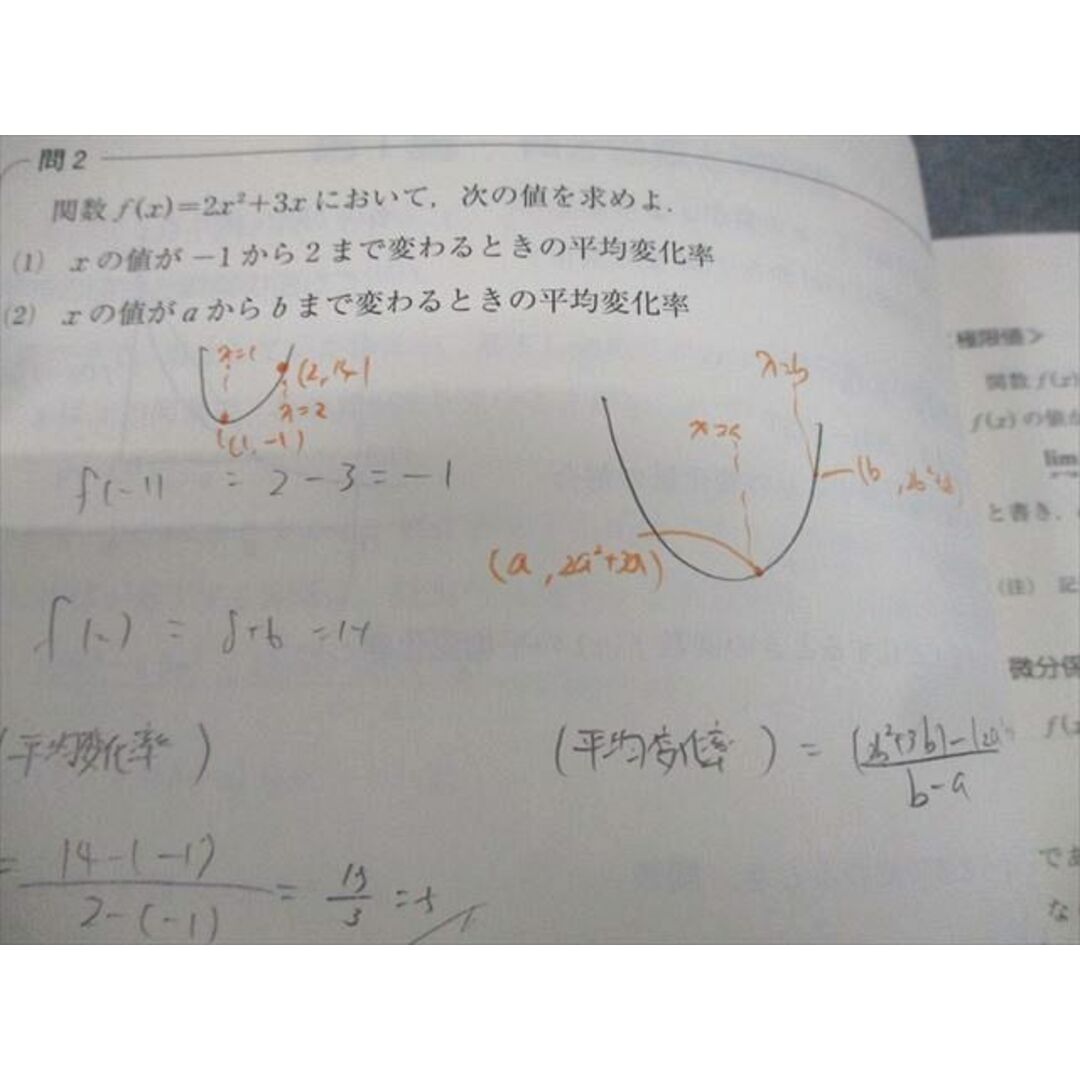 問2
関数 f(x)=2x²+3x において，次の値を求めよ．
(1) xの値が−1から2まで変わるときの平均変化率
(2) xの値がaからbまで変わるときの平均変化率
x=2
x=b
(a, 2a²+3a)
f(-1) = 2-3=-1
= 8+6 =14
(平均変化率)
(平均変化率) = (2b²+3b)-(2a²
b-a
= 14-(-1)
2-(-1)
= 15
3
=5
極限値>
関数 f(x)
f(x) の値が
lim
と書き，
(注) 記
微分係
であ
な